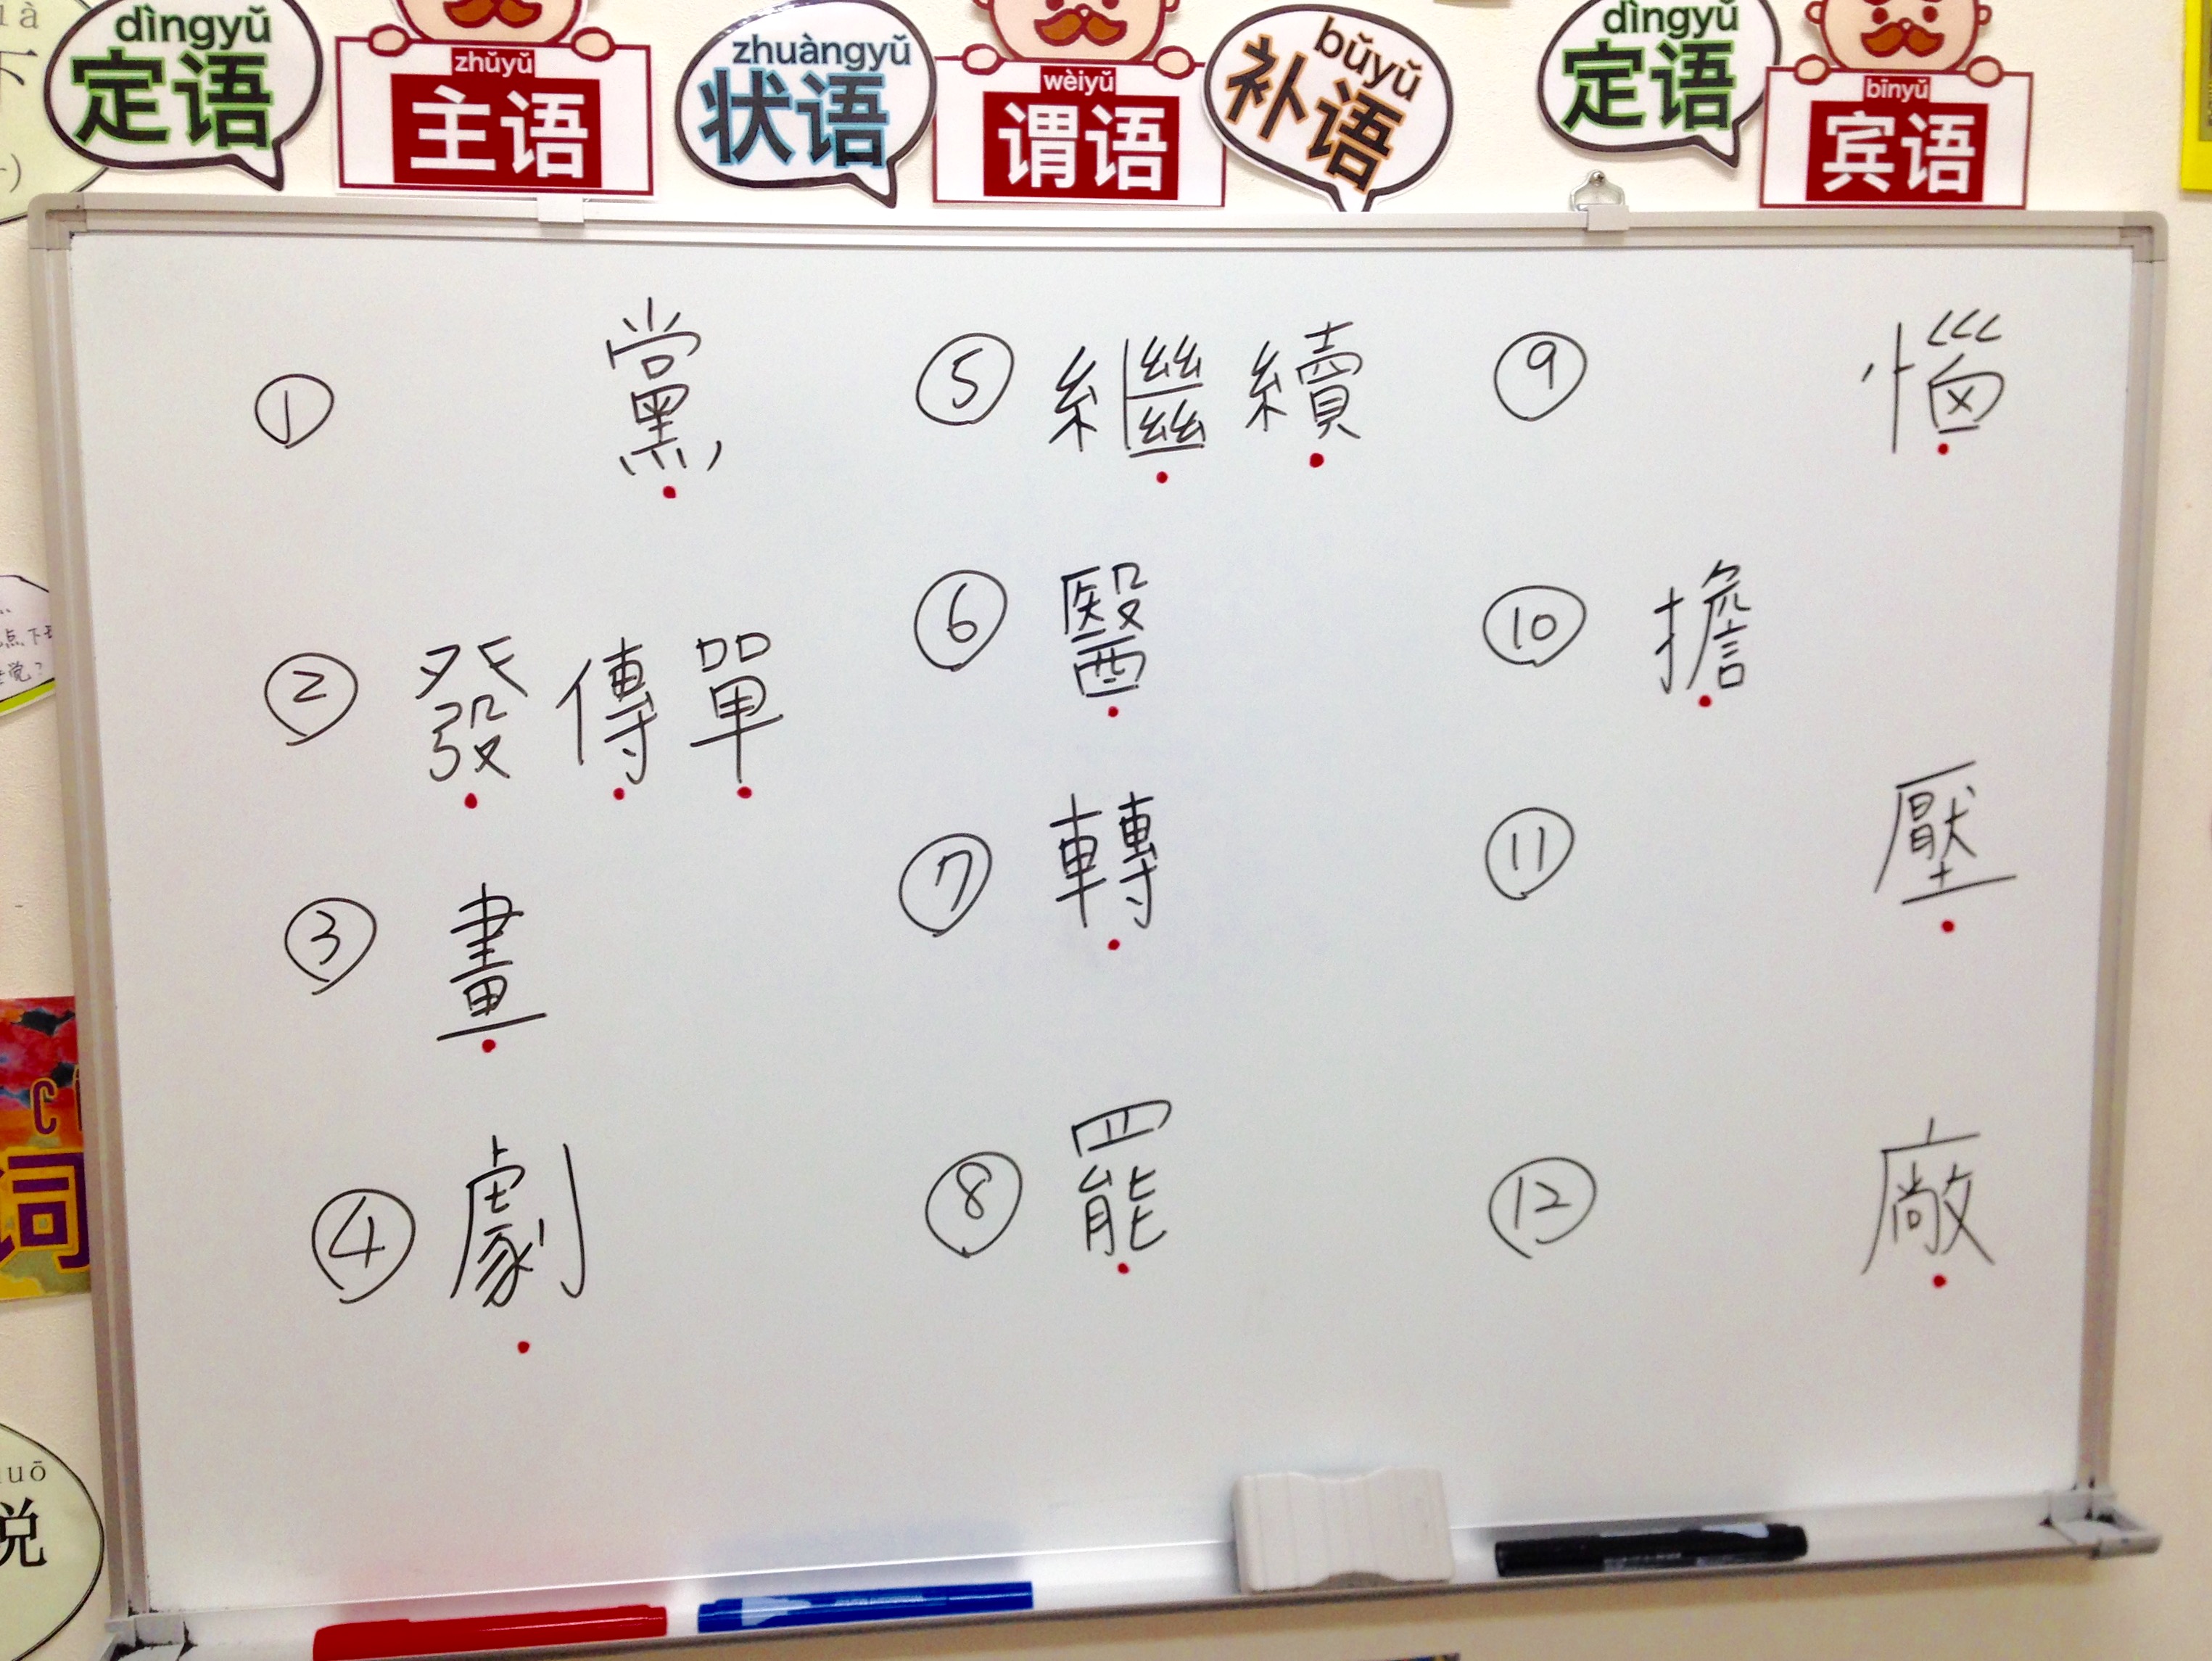 dìngyǔ
定语
zhǔyǔ
主语
zhuàngyǔ
状语
wèiyǔ
谓语
bǔyǔ
补语
dìngyǔ
定语
bīnyǔ
宾语
① 黨
② 發傳單
③ 畫
④ 劇
⑤ 繼續
⑥ 醫
⑦ 轉
⑧ 罷
⑨ 惱
⑩ 擔
⑪ 壓
⑫ 廠
词
说